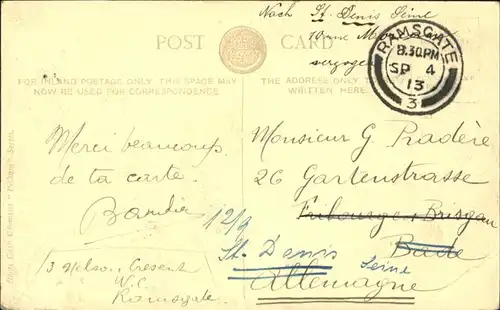 Nach St. Denis Seine
10 rue
verzogen
POST CARD
RAMSGATE
8.30 PM
SP 4
13
3
FOR INLAND POSTAGE ONLY THIS SPACE MAY
NOW BE USED FOR CORRESPONDENCE.
THE ADDRESS ONLY TO BE
WRITTEN HERE.
Merci beaucoup
de ta carte.
12/9
3 Nelson Cresent
Ramsgate.
Monsieur G. Pradère
26 Gartenstrasse
Fribourg-Brisgau
Bade
St. Denis Seine
Allemagne